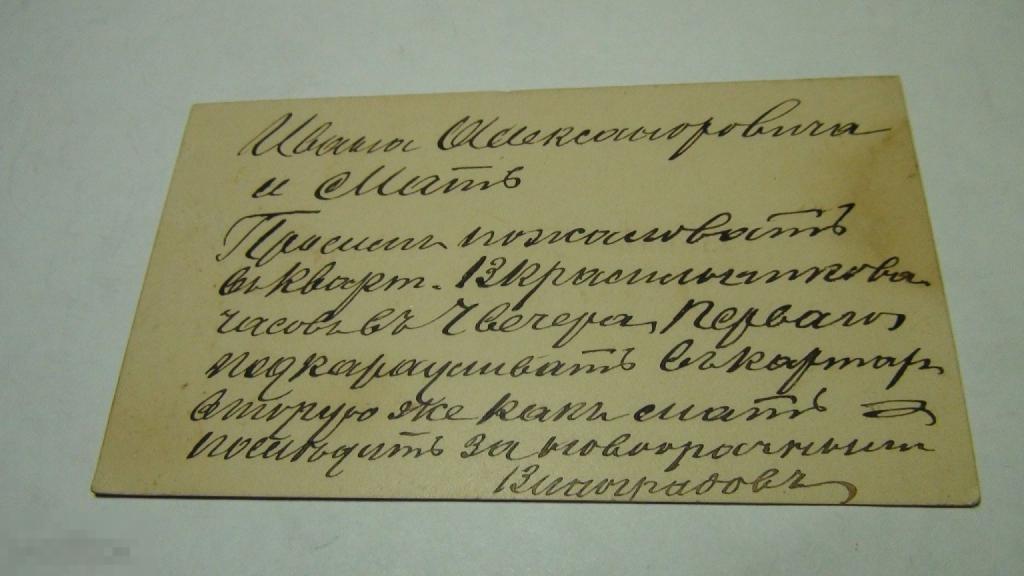 Ивана Александровича
и Мать
Просим пожаловать
въ кварт. В Красильникова
часовъ въ 7 вечера, Перваго
подкарауливать въ картар
вторую же какъ мать
последить за новобрачными
Виноградовъ